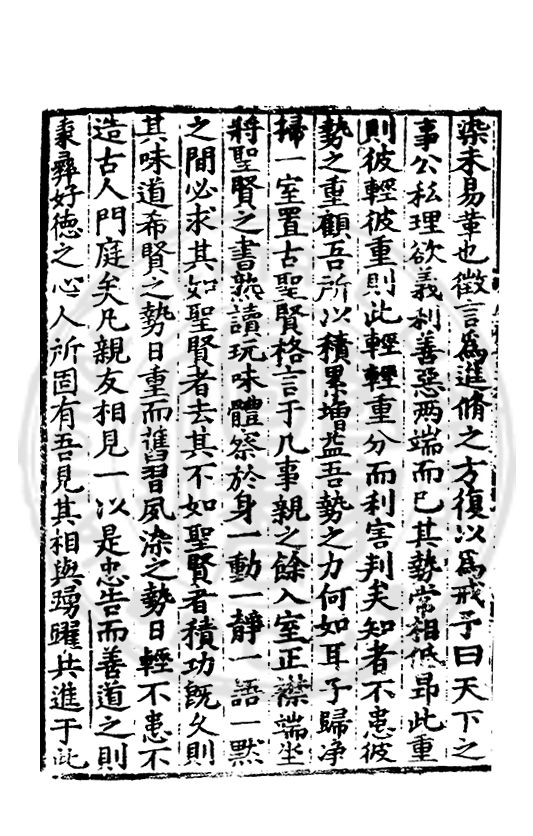 染未易革也徵言為進脩之方復以為戒予曰天下之
事公私理欲義利善惡两端而已其勢常相低昻此重
則彼輕彼重則此輕輕重分而利害判矣知者不患彼
勢之重顧吾所以積累增益吾勢之力何如耳子歸净
掃一室置古聖賢格言于几事親之餘入室正襟端坐
將聖賢之書熟讀玩味體察於身一動一靜一語一黙
之間必求其如聖賢者去其不如聖賢者積功旣久則
其味道希賢之勢日重而舊習夙染之勢日輕不患不
造古人門庭矣凡親友相見一以是忠告而善道之則
秉彞好德之心人所固有吾見其相與踴躍共進于此